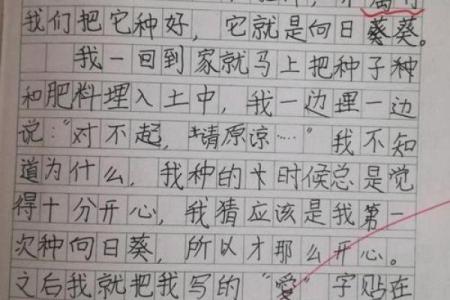 我们把它种好，它就是向日葵葵。
我一回到家就马上把种子种
和肥料埋入土中，我一边埋一边
说："对不起，请原谅……"我不知
道为什么，我种的卡时候总是觉
得十分开心，我猜应该是我第一
次种向日葵，所以才那么开心。
之后我就把我写的"爱"字贴在